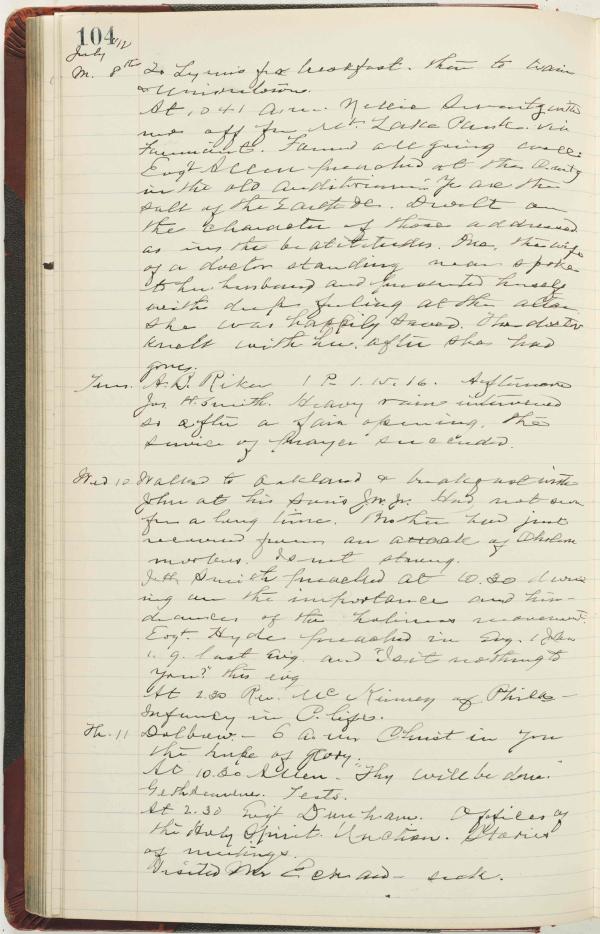 104
July /12
M. 8th To Lynn's for breakfast. then to train
& Uniontown.
At 10 41 a.m. Nellie Swartz with
me off for Mt. Lake Park. via
Fairmont. Found all going well.
Evgt Allen preached at the Evg
in the old auditorium "Ye are the
salt of the Earth &c. Dwelt on
the character of those addressed
as in the beatitudes. One, the wife
of a doctor standing near spoke
to her husband and presented herself
with deep feeling at the altar.
She was happily saved. The doctor
knelt with her, after she had
gone.
Tues. A.B. Riker 1 P. 1.15.16. Afternoon
Jos. H. Smith. Heavy rain intervened
so after a fair opening, the
service of prayer succeeded.
Wed 10 Walked to Oakland & breakfast with
John at his son's Jn. Jr. Had not seen
for a long time. Brother had just
recovered from an attack of Cholera
morbus. Is not strong.
Smith preached at 10.30 dwell-
ing on the importance and hin-
drances of the holiness movement.
Evgt. Hyde preached in Evg. 1 John
1. 9. last evg and "Is it nothing to
you?" this evg
At 2.30 Rev. McKinney of Phila -
Infancy in C. life.
Th. 11 - 6 a.m Christ in you
the hope of glory.
At 10.30 Allen - "Thy will be done."
Gethsemene. Tests.
At 2.30 Evgt Dunham. Offices of
the Holy Spirit. Unction. Stories
of meetings.
Visited Mr - sick.